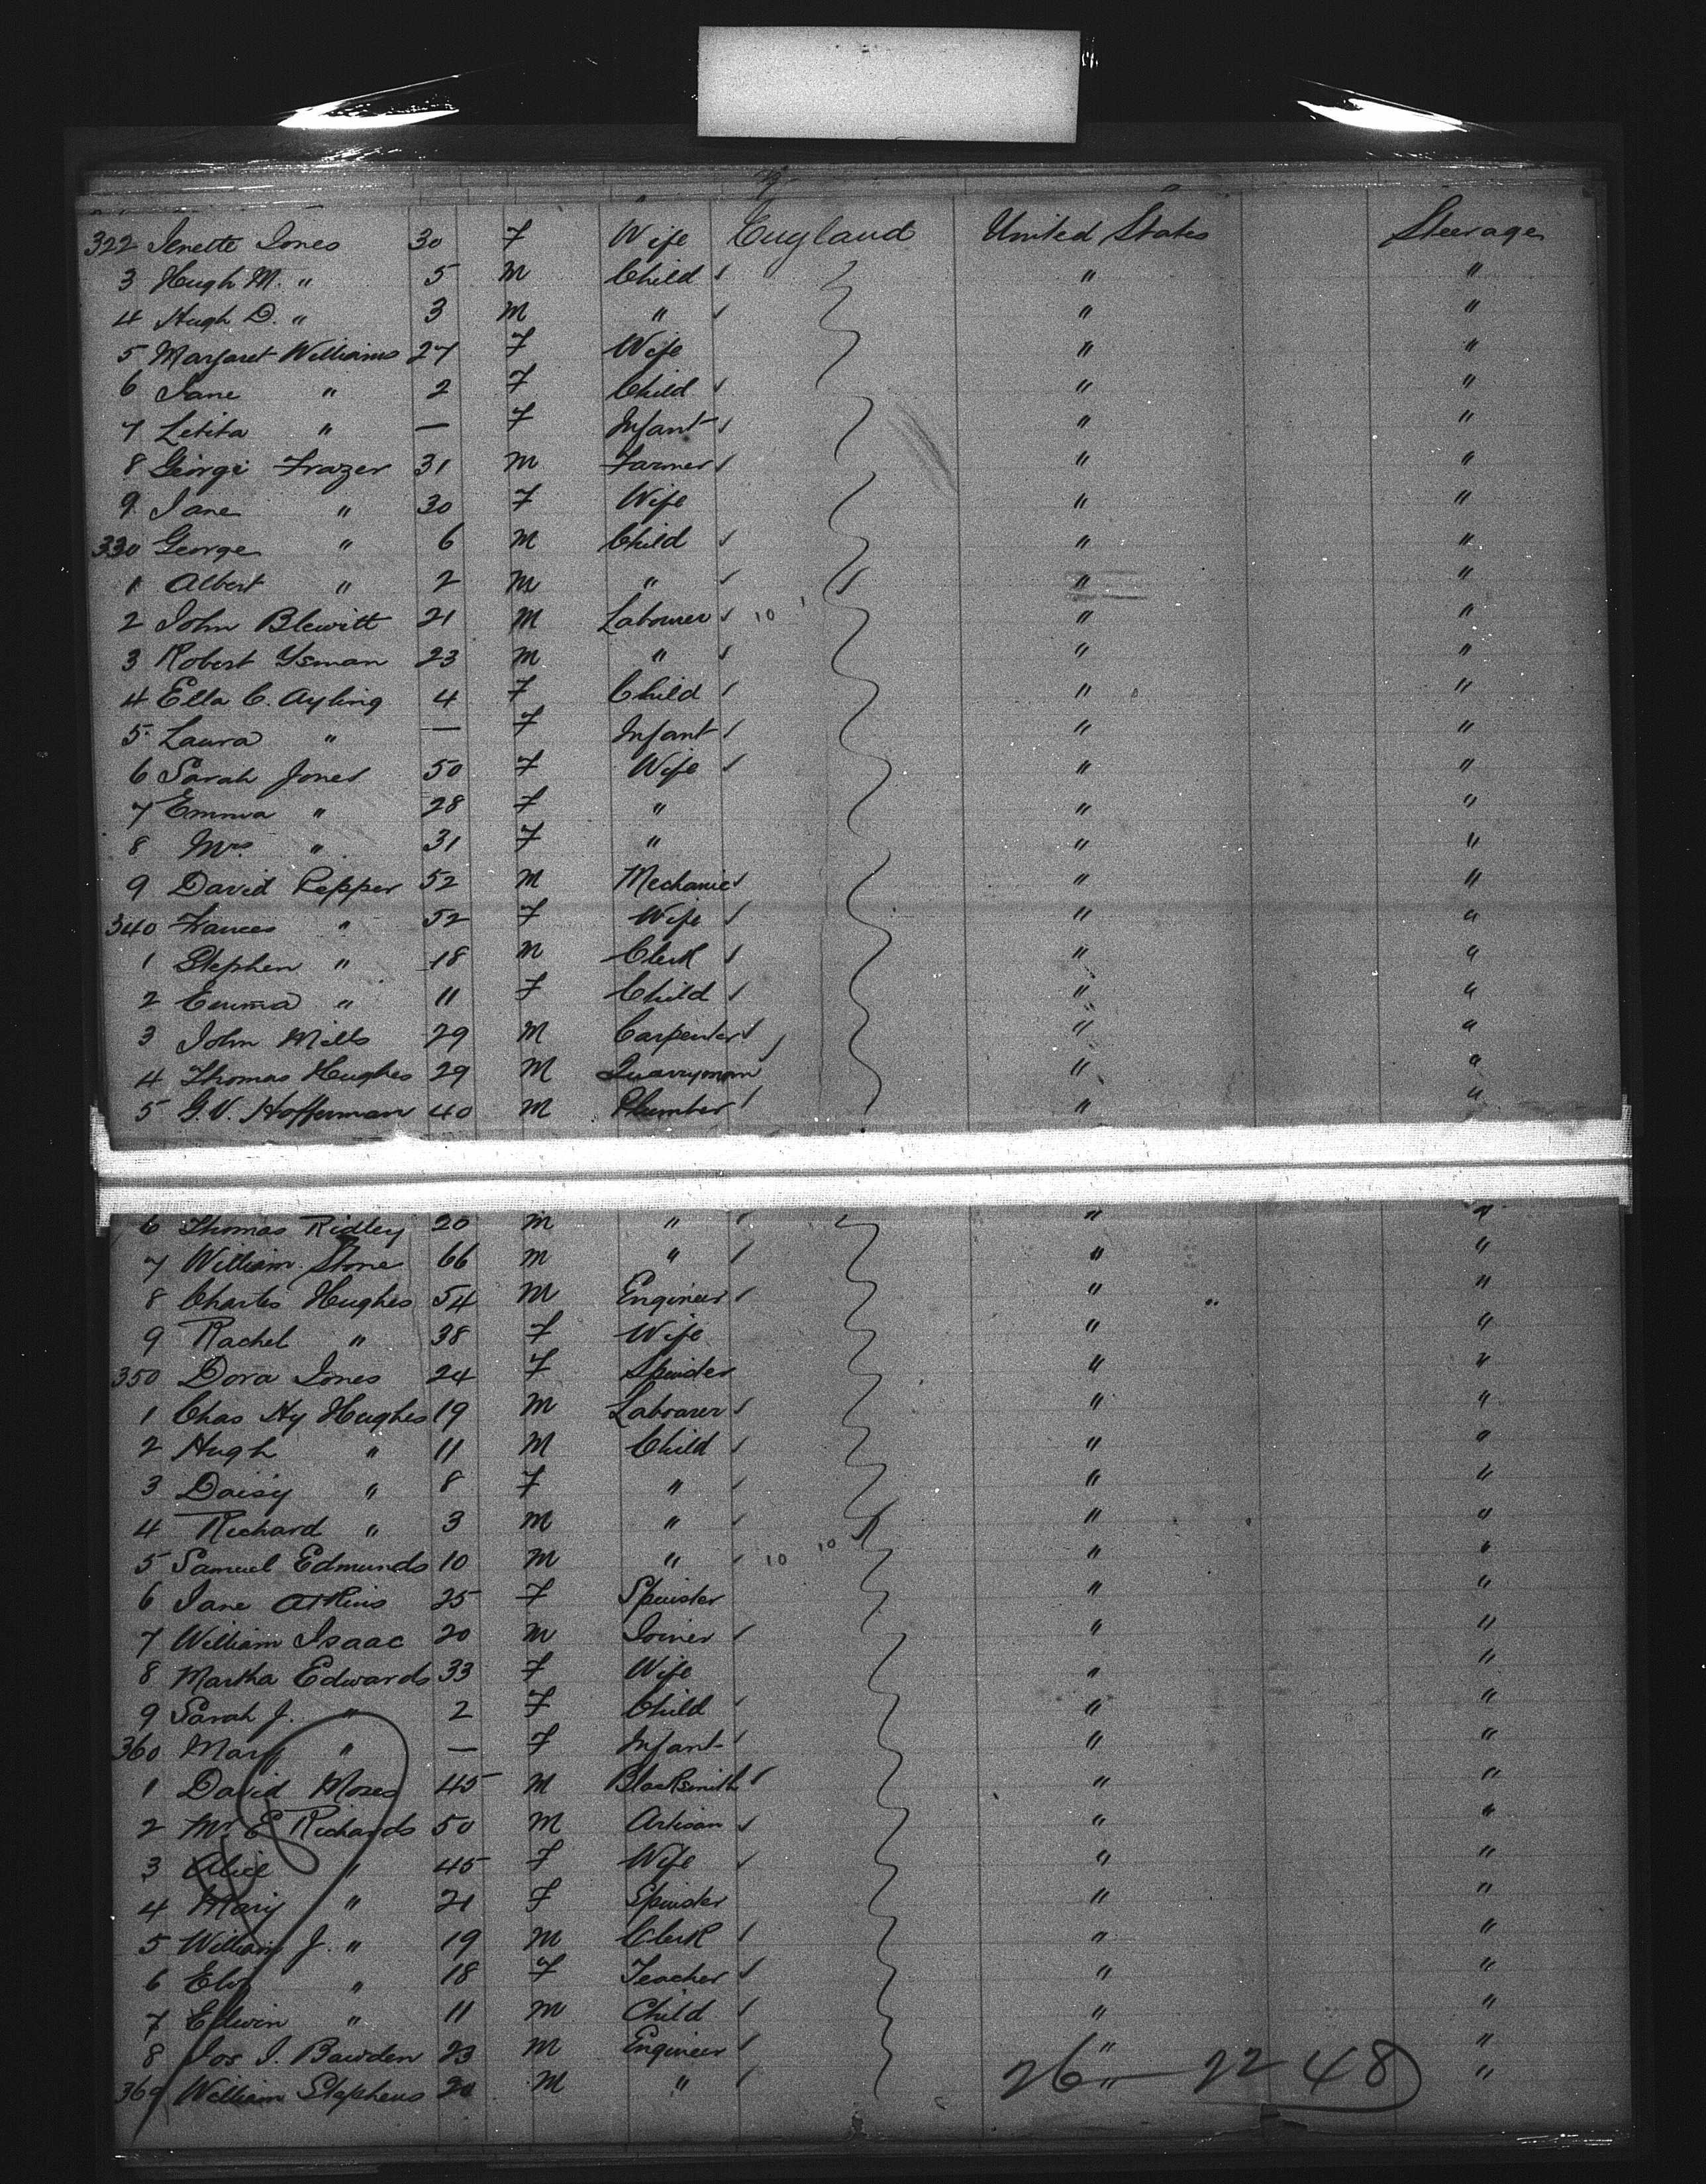 322 Jenette Jones 30 F Wife England United States Steerage
3 Hugh M. " 5 M Child " "
4 Hugh D. " 3 M " " "
5 Margaret Williams 27 F Wife " "
6 Jane " 2 F Child " "
7 Letita " — F Infant " "
8 George Frazer 31 M Farmer " "
9 Jane " 30 F Wife " "
330 George " 6 M Child " "
1 Albert " 2 M " " "
2 John Blewitt 21 M Labourer 10 " "
3 Robert Ysman 23 M " " "
4 Ella C. Ayling 4 F Child " "
5 Laura " — F Infant " "
6 Sarah Jones 50 F Wife " "
7 Emma " 28 F " " "
8 Mrs " 31 F " " "
9 David Pepper 52 M Mechanic " "
340 Frances " 52 F Wife " "
1 Stephen " 18 M Clerk " "
2 Emma " 11 F Child " "
3 John Mills 29 M Carpenter " "
4 Thomas Hughes 29 M Quarryman " "
5 G.V. Hofferman 40 M Plumber " "
6 Thomas Ridley 20 M " " "
7 William Stone 66 M " " "
8 Charles Hughes 54 M Engineer " "
9 Rachel " 38 F Wife " "
350 Dora Jones 24 F Spinster " "
1 Chas Hy Hughes 19 M Labourer " "
2 Hugh " 11 M Child " "
3 Daisy " 8 F " " "
4 Richard " 3 M " " "
5 Samuel Edmunds 10 M " 10 10 " "
6 Jane Atkins 25 F Spinster " "
7 William Isaac 20 M Joiner " "
8 Martha Edwards 33 F Wife " "
9 Sarah J. " 2 F Child " "
360 Mary " — F Infant " "
1 David Moses 45 M Blacksmith " "
2 Mr E Richards 50 M Artisan " "
3 Alice " 45 F Wife " "
4 Mary " 21 F Spinster " "
5 William J. " 19 M Clerk " "
6 " 18 F Teacher " "
7 Edwin " 11 M Child " "
8 Jos J. Bawden 23 M Engineer " "
369 William Stephens 20 M " " "
26 — 22 48